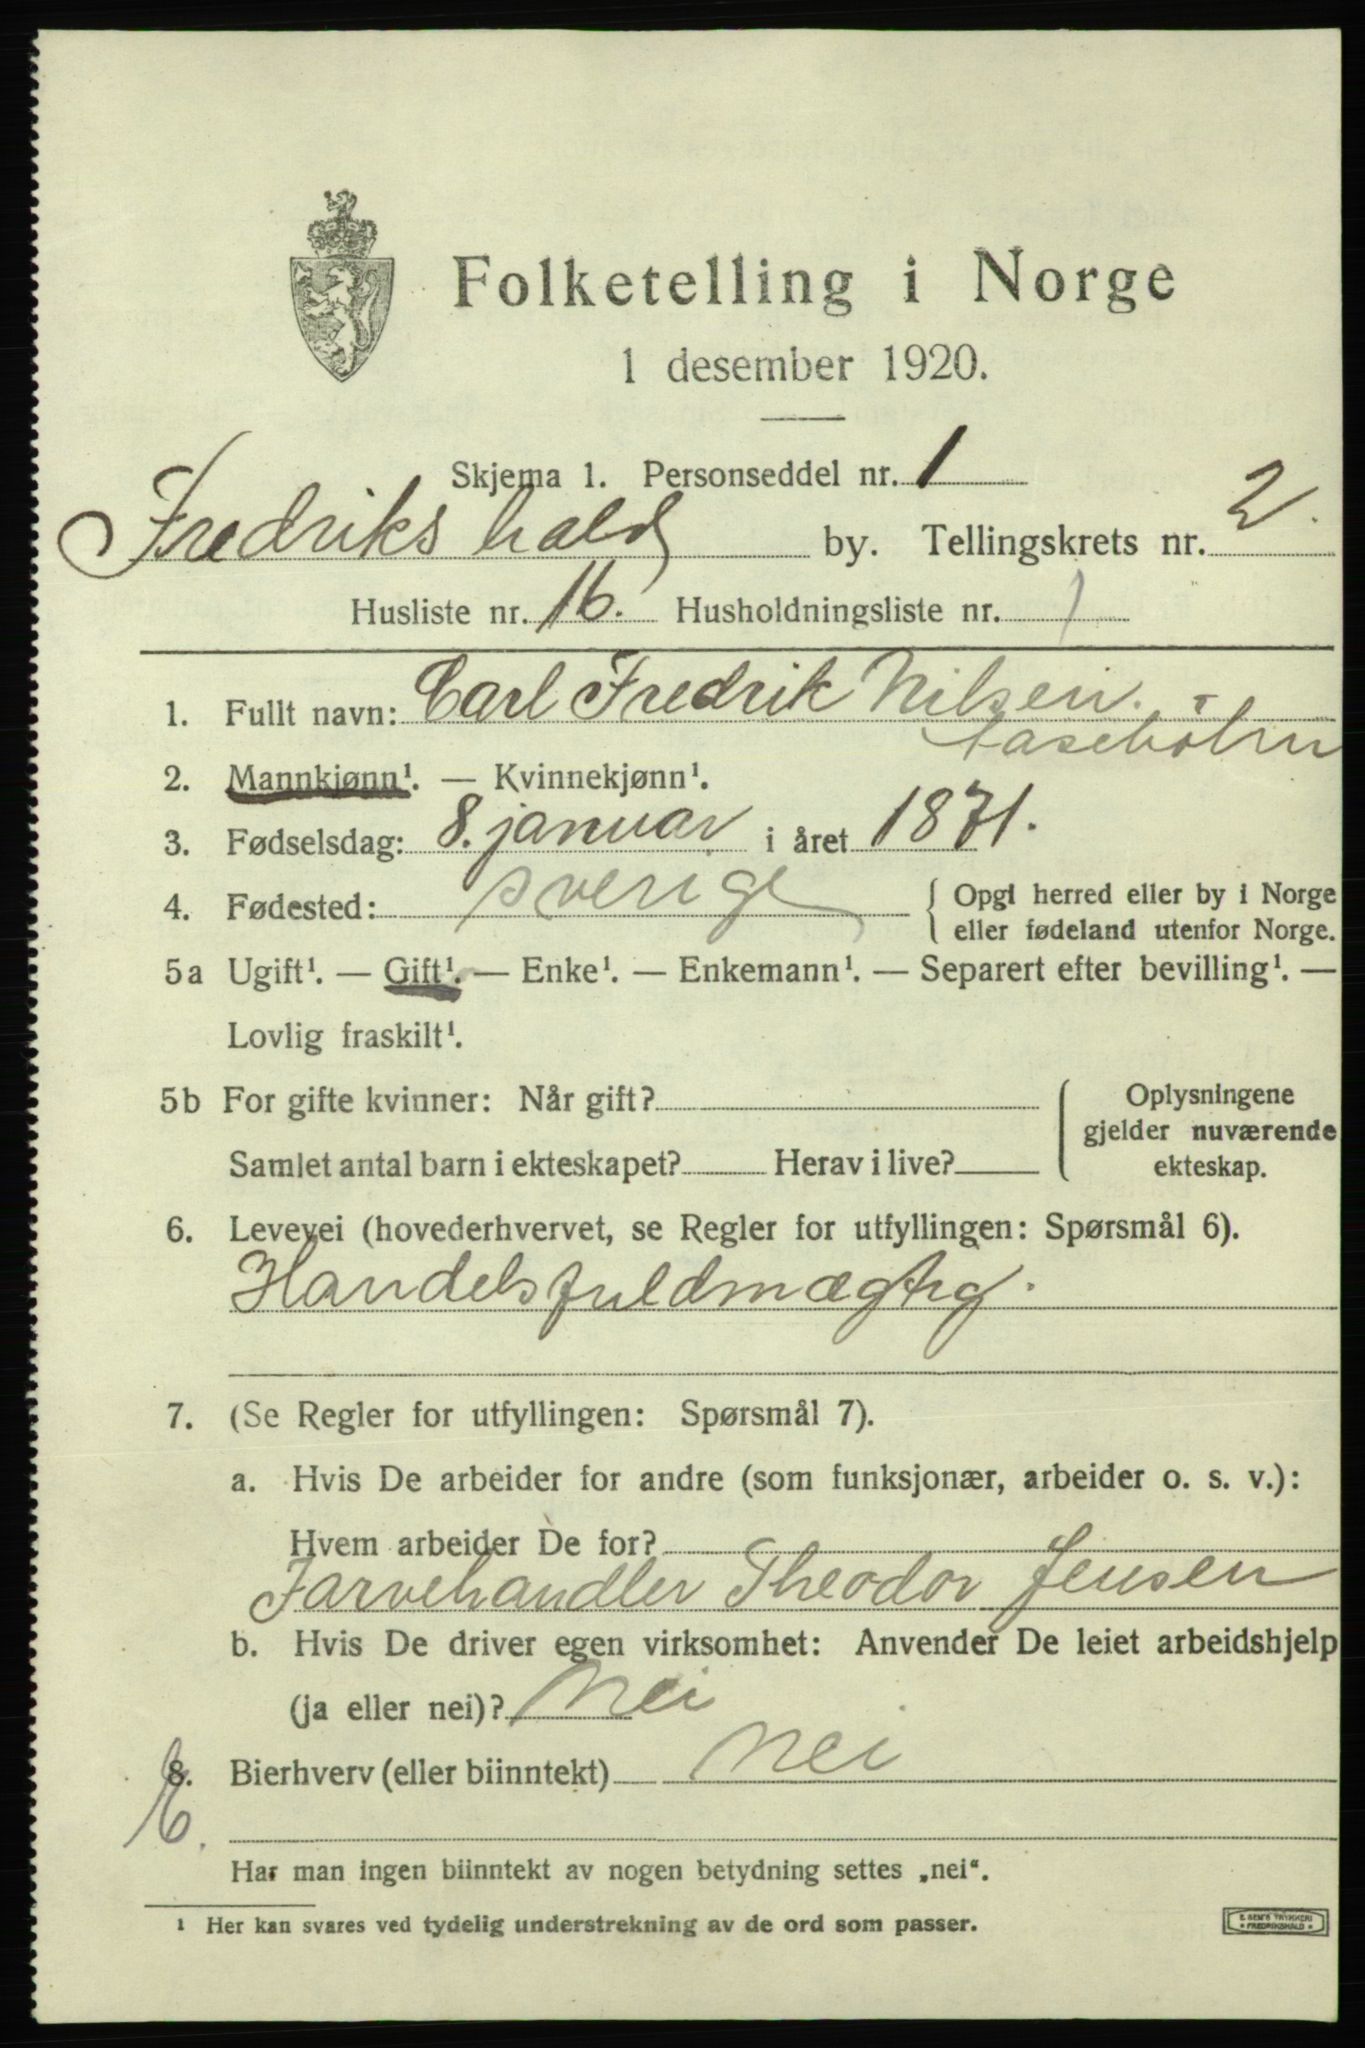 Folketelling i Norge
1 desember 1920.
Skjema 1. Personseddel nr. 1
Fredrikshald by. Tellingskrets nr. 2.
Husliste nr. 16. Husholdningsliste nr. 1
1. Fullt navn: Carl Fredrik Nilsen.
2. Mannkjønn¹. — Kvinnekjønn¹.
3. Fødselsdag: 8. januar i året 1871.
4. Fødested: Sverige { Opgi herred eller by i Norge
eller fødeland utenfor Norge.
5a Ugift¹. — Gift¹. — Enke¹. — Enkemann¹. — Separert efter bevilling¹. —
Lovlig fraskilt¹.
5b For gifte kvinner: Når gift? { Oplysningene
gjelder nuværende
Samlet antal barn i ekteskapet? Herav i live? ekteskap.
6. Levevei (hovederhvervet, se Regler for utfyllingen: Spørsmål 6).
Handelsfuldmægtig.
7. (Se Regler for utfyllingen: Spørsmål 7).
a. Hvis De arbeider for andre (som funksjonær, arbeider o. s. v.):
Hvem arbeider De for?
Farvehandler Theodor Jensen
b. Hvis De driver egen virksomhet: Anvender De leiet arbeidshjelp
(ja eller nei)? Nei
8. Bierhverv (eller biinntekt) Nei
Har man ingen biinntekt av nogen betydning settes „nei“.
1 Her kan svares ved tydelig understrekning av de ord som passer.
TRYKKERI
FREDRIKSHALD